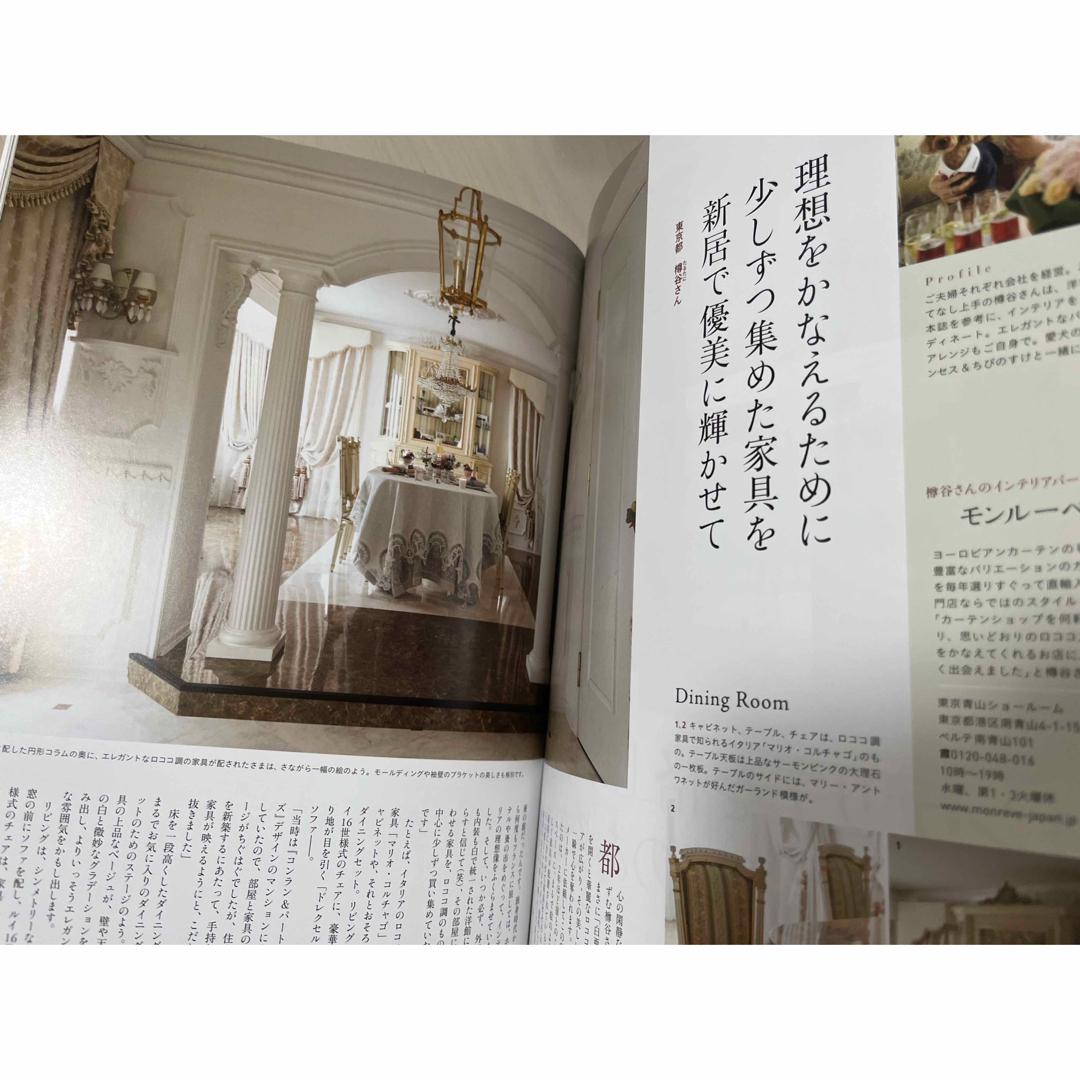 理想をかなえるために
少しずつ集めた家具を
新居で優美に輝かせて
東京都 樽谷さん
Profile
ご夫婦それぞれ会社を経営。
てなし上手の樽谷さんは、洋
本誌を参考に、インテリアを
ディネート。エレガントなパ
アレンジもご自身で。愛犬の
ンセス＆ちびのすけと一緒に
樽谷さんのインテリアパー
モンルーベ
ヨーロピアンカーテンの
豊富なバリエーションのカ
を毎年選りすぐって直輸入
門店ならではのスタイル
「カーテンショップを何軒
り、思いどおりのロココ
をかなえてくれるお店に
く出会えました」と樽谷さ
東京青山ショールーム
東京都港区南青山4-1-15
ベルテ南青山101
0120-048-016
10時〜19時
水曜、第1・3火曜休
www.monreve-japan.jp
Dining Room
1,2 キャビネット、テーブル、チェアは、ロココ調
家具で知られるイタリア「マリオ・コルチャゴ」のも
の。テーブル天板は上品なサーモンピンクの大理石
の一枚板。テーブルのサイドには、マリー・アント
ワネットが好んだガーランド模様が。
2
配した円形コラムの奥に、エレガントなロココ調の家具が配されたさまは、さながら一幅の絵のよう。モールディングや袖壁のブラケットの美しさも格別です。
都
心の閑静な
ずむ樽谷さ
した。そして、いつか必ず、外
も内装も白で統一された洋館に
らすと信じて(笑)、その部屋に
わせる家具を、ロココ調のもの
中心に少しずつ買い集めていた
です」
たとえば、イタリアのロココ
家具「マリオ・コルチャゴ」
ャビネットや、それとおそろ
ダイニングセット。リビング
イ16世様式のチェアに、豪華
り地が目を引く「ドレクセル
ソファー――。
「当時は『コンラン＆パート
ズ』デザインのマンションに
していたので、部屋と家具の
ージがちぐはぐでしたが、住
を新築するにあたって、手持
家具が映えるようにと、こだ
抜きました」
床を一段高くしたダイニン
まるでお気に入りのダイニン
ットのためのステージのよう。
具の上品なベージュが、壁や天
の白と微妙なグラデーションを
み出し、よりいっそうエレガン
な雰囲気をかもし出します。
リビングは、シンメトリーな
窓の前にソファを配し、ルイ16
様式のチェアは、